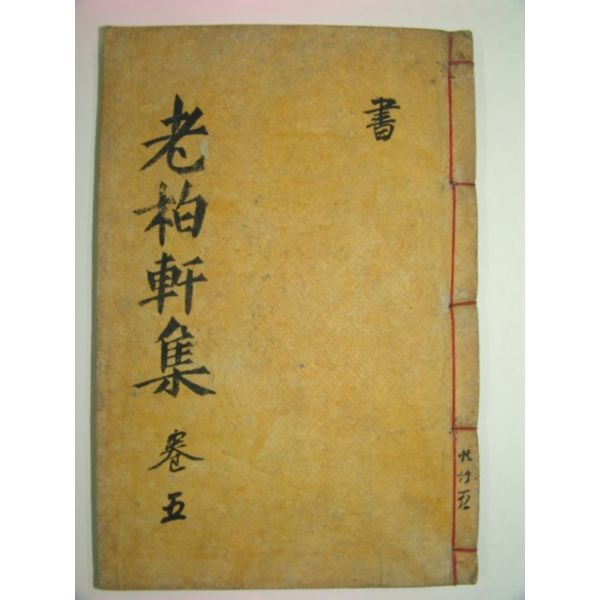 書
老柏軒集 卷五